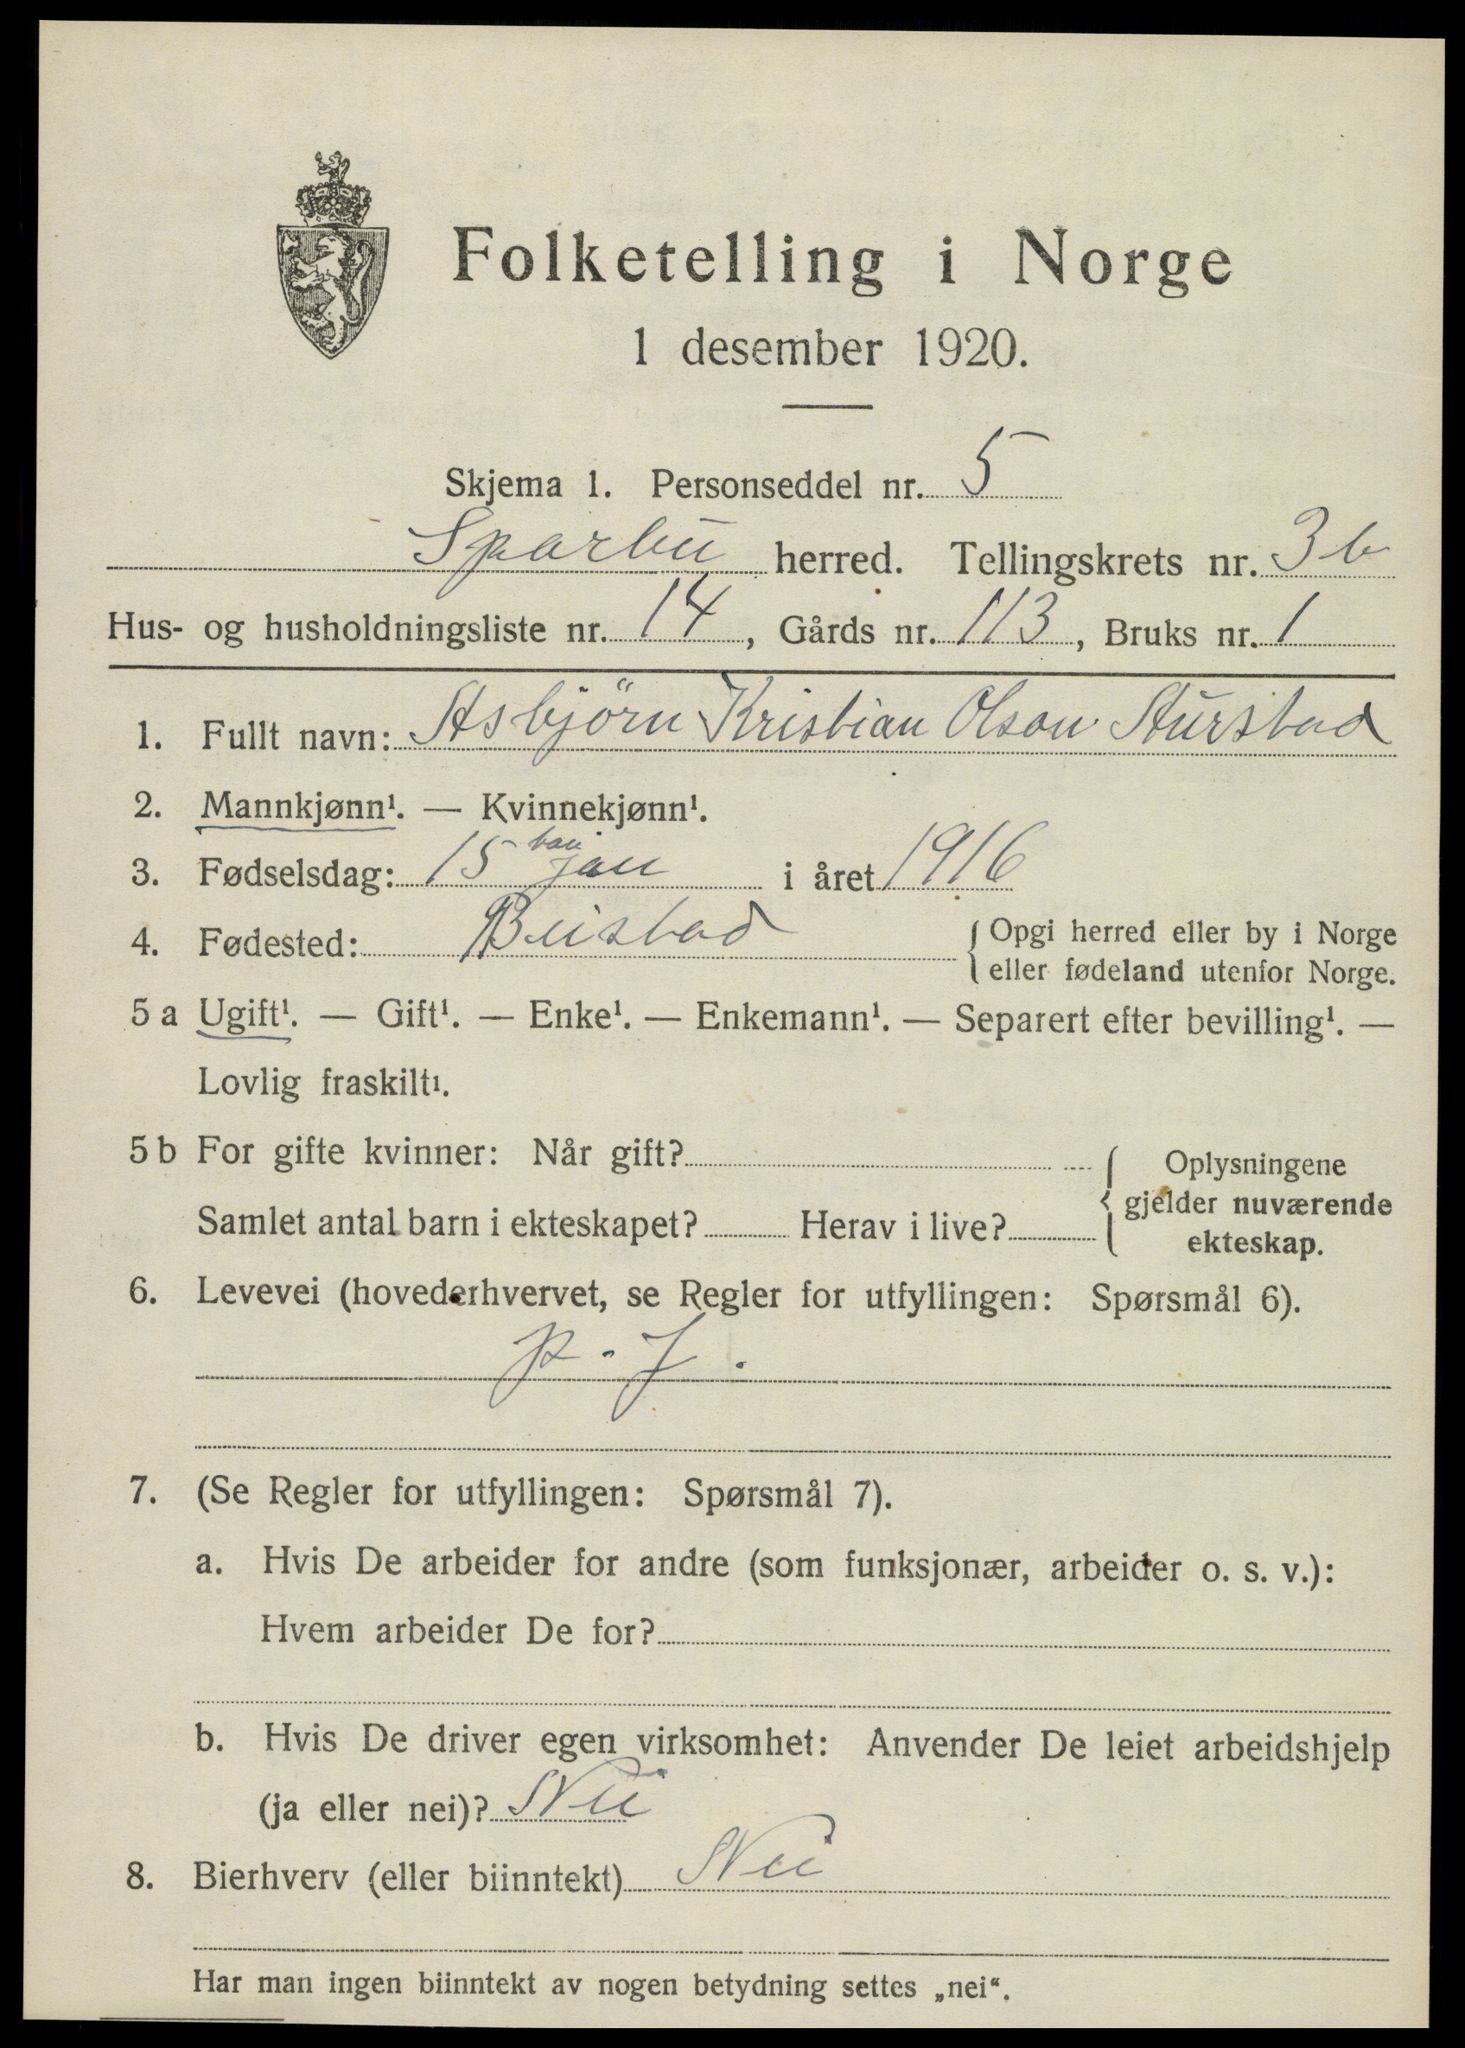 Folketelling i Norge
1 desember 1920.
Skjema 1. Personseddel nr. 5
Sparbu herred. Tellingskrets nr. 3b
Hus- og husholdningsliste nr. 14, Gårds nr. 113, Bruks nr. 1
1. Fullt navn: Asbjörn Kristian Olson Sturstad
2. Mannkjønn¹. — Kvinnekjønn¹.
3. Fødselsdag: 15 jan i året 1916
4. Fødested: Beistad { Opgi herred eller by i Norge
eller fødeland utenfor Norge.
5 a Ugift¹. — Gift¹. — Enke¹. — Enkemann¹. — Separert efter bevilling¹. —
Lovlig fraskilt¹.
5 b For gifte kvinner: Når gift? { Oplysningene
Samlet antal barn i ekteskapet? Herav i live? gjelder nuværende
ekteskap.
6. Levevei (hovederhvervet, se Regler for utfyllingen: Spørsmål 6).
p. f.
7. (Se Regler for utfyllingen: Spørsmål 7).
a. Hvis De arbeider for andre (som funksjonær, arbeider o. s. v.):
Hvem arbeider De for?
b. Hvis De driver egen virksomhet: Anvender De leiet arbeidshjelp
(ja eller nei)? Nei
8. Bierhverv (eller biinntekt) Nei
Har man ingen biinntekt av nogen betydning settes „nei“.